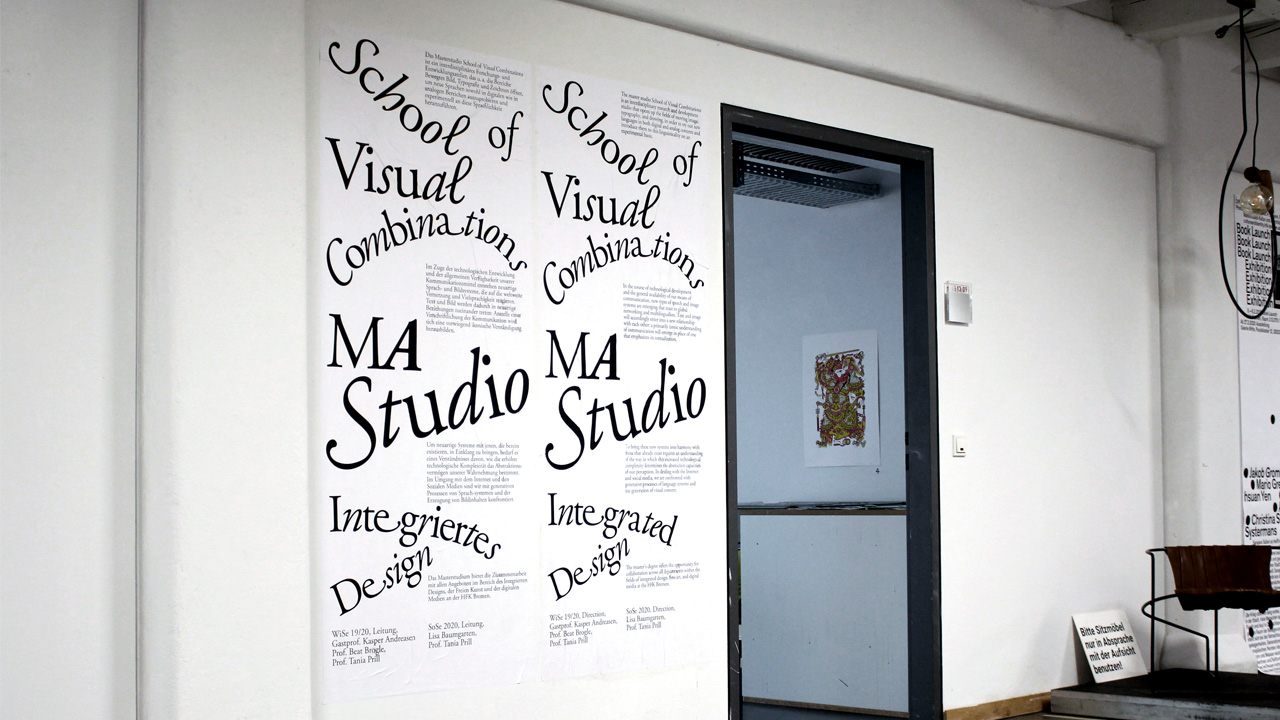 School of
Visual
Combinations
Das Masterstudio School of Visual Combinations
ist ein interdisziplinäres Forschungs- und
Entwicklungsatelier, das u. a. die Bereiche
Bewegtes Bild, Typografie und Zeichnen öffnet,
um neue Sprachen sowohl in digitalen wie in
analogen Bereichen auszuprobieren und
experimentell an diese Sprachlichkeit
heranzuführen.
Im Zuge der technologischen Entwicklung
und der allgemeinen Verfügbarkeit unserer
Kommunikationsmittel entstehen neuartige
Sprach- und Bildsysteme, die auf die weltweite
Vernetzung und Vielsprachigkeit reagieren.
Text und Bild werden dadurch in neuartige
Beziehungen zueinander treten: Anstelle einer
Verschriftlichung der Kommunikation wird
sich eine vorwiegend ikonische Verständigung
herausbilden.
MA
Studio
Um neuartige Systeme mit jenen, die bereits
existieren, in Einklang zu bringen, Bedarf es
eines Verständnisses davon, wie die erhöhte
technologische Komplexität das Abstraktions-
vermögen unserer Wahrnehmung bestimmt.
Im Umgang mit dem Internet und den
Sozialen Medien sind wir mit generativen
Prozessen von Sprach-systemen und der
Erzeugung von Bildinhalten konfrontiert.
Integriertes
Design
Das Masterstudium bietet die Zusammenarbeit
mit allen Angeboten im Bereich des Integrierten
Designs, der Freien Kunst und der digitalen
Medien an der HFK Bremen.
WiSe 19/20, Leitung,
Gastprof. Kasper Andreasen
Prof. Beat Brogle,
Prof. Tania Prill
SoSe 2020, Leitung,
Lisa Baumgarten,
Prof. Tania Prill
School of
Visual
Combinations
The master studio School of Visual Combinations
is an interdisciplinary research and development
studio that opens up the fields of moving image,
typography, and drawing, in order to try out new
languages in both digital and analog contexts and
introduce them to this linguisticality on an
experimental basis.
In the course of technological development
and the general availability of our means of
communication, new types of speech and image
systems are emerging that react to global
networking and multilingualism. Text and image
will accordingly enter into a new relationship
with each other: a primarily iconic understanding
of communication will emerge in place of one
that emphasizes its textualization.
MA
Studio
To bring these new systems into harmony with
those that already exist requires an understanding
of the way in which this increased technological
complexity determines the abstractive capacities
of our perception. In dealing with the Internet
and social media, we are confronted with
generative processes of language systems and
the generation of visual content.
Integrated
Design
The master's degree offers the opportunity for
collaboration across all departments within the
fields of integrated design, fine art, and digital
media at the HFK Bremen.
WiSe 19/20, Direction,
Gastprof. Kasper Andreasen,
Prof. Beat Brogle,
Prof. Tania Prill
SoSe 2020, Direction,
Lisa Baumgarten,
Prof. Tania Prill
Book Launch
Book Launch
Book Launch
Exhibition
Exhibition
Jakob Grom
Mario Gra
hsuan Yen
Christina S
Systermans
Bitte Sitzmöbel
nur in Absprache
mit der Aufsicht
benutzen!